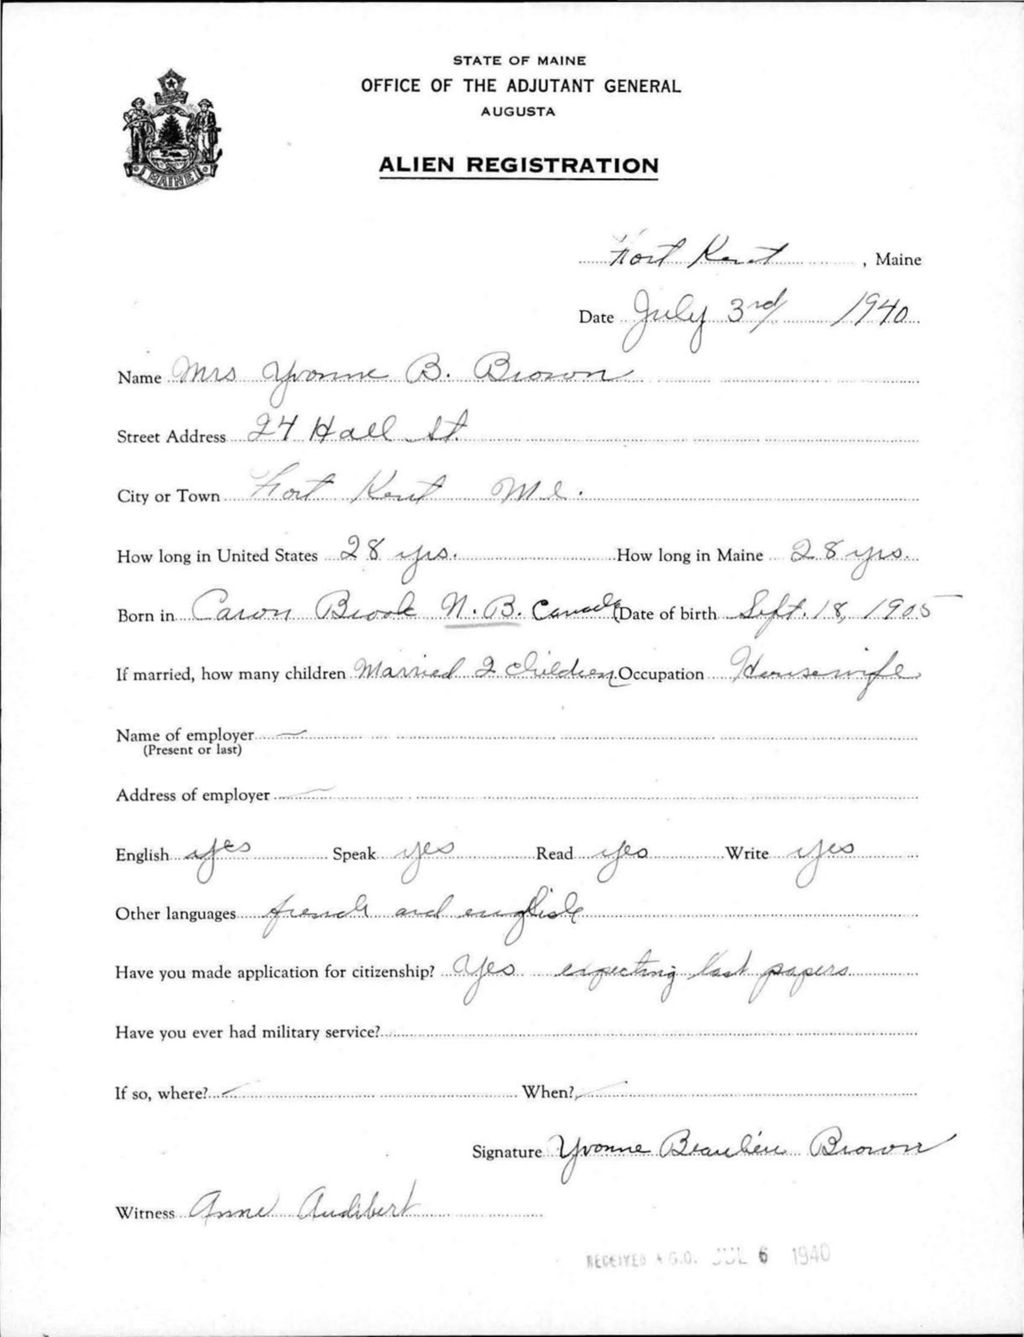 STATE OF MAINE
OFFICE OF THE ADJUTANT GENERAL
AUGUSTA
ALIEN REGISTRATION
MAINE
Fort Kent, Maine
Date July 3rd 1940
Name Mrs Yvonne B. Brown
Street Address 24 Hall St.
City or Town Fort Kent Me.
How long in United States 28 yrs. How long in Maine 28 yrs.
Born in Caron Brook N.B. Canada Date of birth Sept. 18, 1905
If married, how many children Married 2 children Occupation Housewife
Name of employer —
(Present or last)
Address of employer —
English yes Speak yes Read yes Write yes
Other languages french and english
Have you made application for citizenship? Yes expecting last papers
Have you ever had military service?
If so, where? — When? —
Signature Yvonne Beaulieu Brown
Witness Anne Audibert
RECEIVED A.G.O. JUL 6 1940